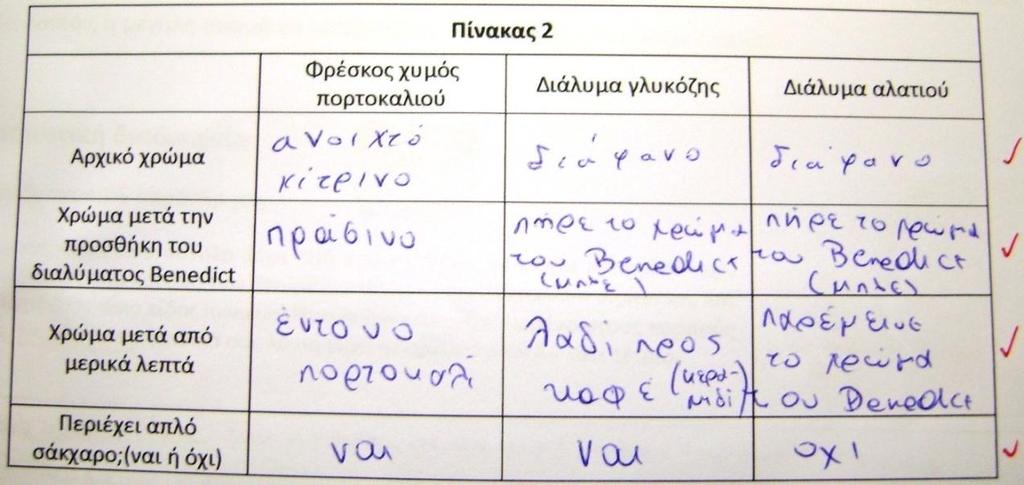 Πίνακας 2
Φρέσκος χυμός
πορτοκαλιού
Διάλυμα γλυκόζης
Διάλυμα αλατιού
Αρχικό χρώμα
ανοιχτό
κίτρινο
διάφανο
διάφανο
Χρώμα μετά την
προσθήκη του
διαλύματος Benedict
πράσινο
πήρε το χρώμα
του Benedict
(μπλε)
πήρε το χρώμα
του Benedict
(μπλε)
Χρώμα μετά από
μερικά λεπτά
έντονο
πορτοκαλί
λαδί προς
καφέ (κερα-
μιδί)
παρέμεινε
το χρώμα
του Benedict
Περιέχει απλό
σάκχαρο;(ναι ή όχι)
ναι
ναι
οχι